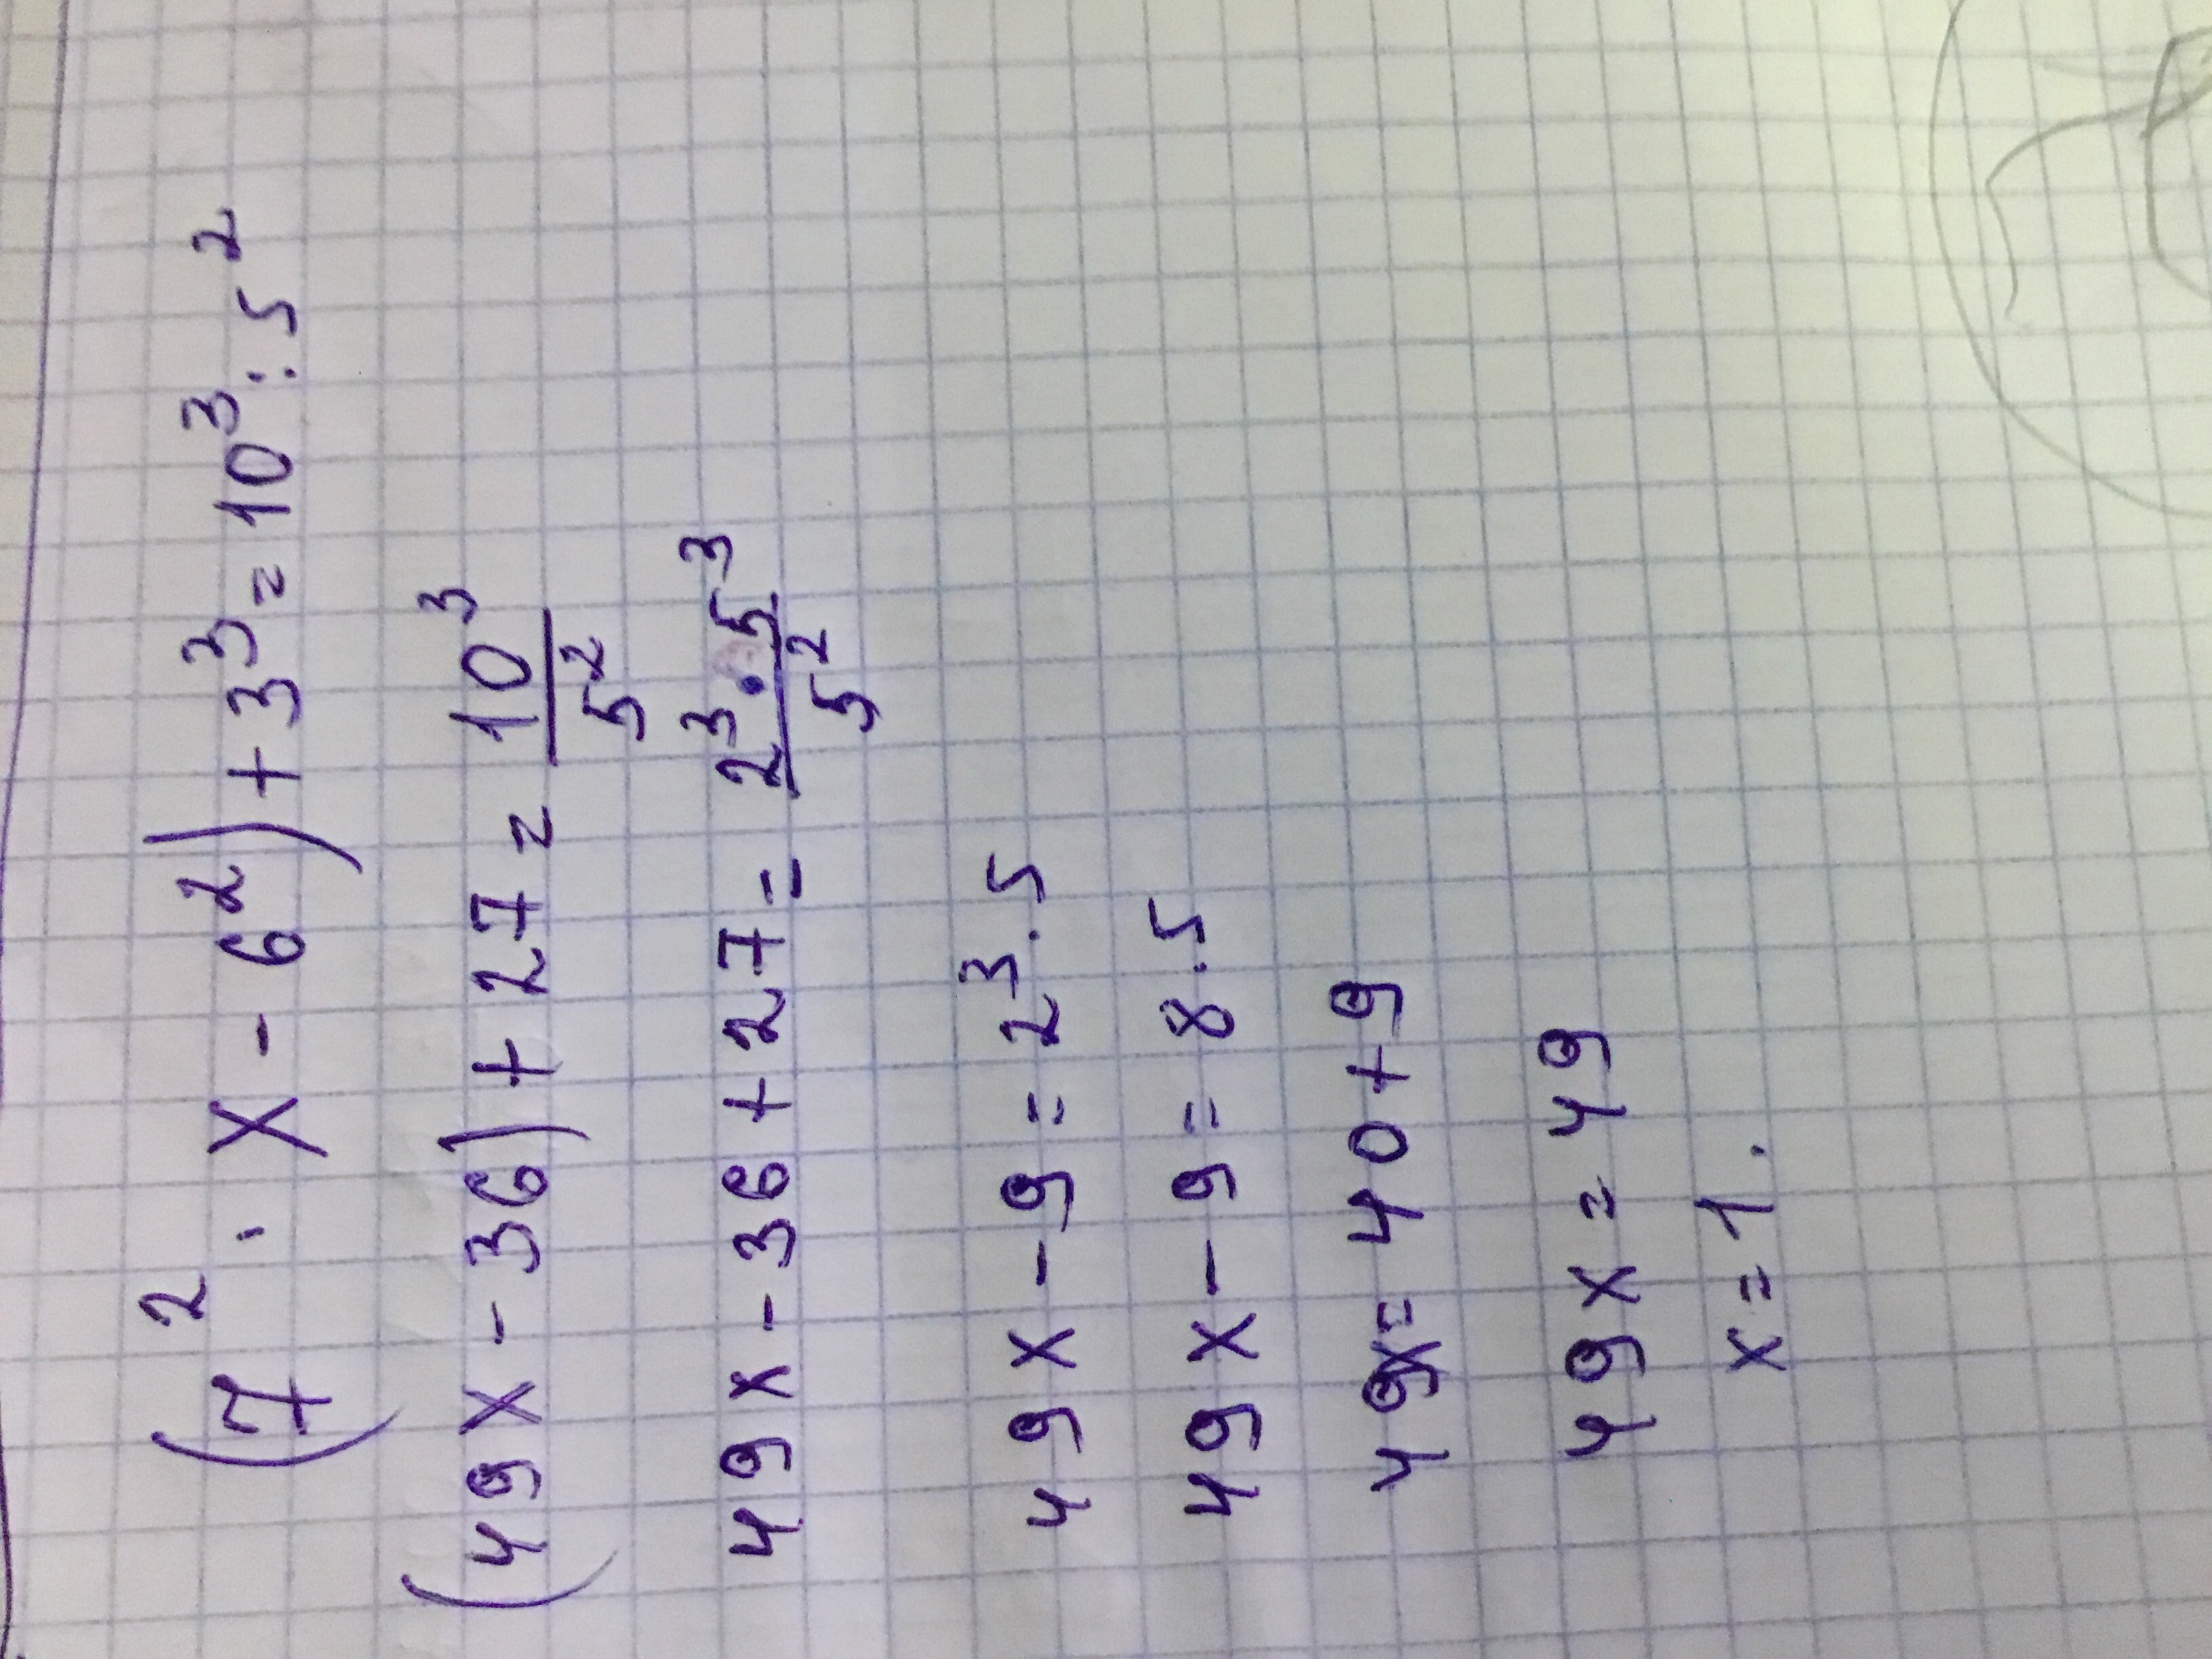 (7² · x - 6²) + 3³ = 10³ : 5²
(49x - 36) + 27 = 10³/5²
49x - 36 + 27 = 2³ · 5³/5²
49x - 9 = 2³ · 5
49x - 9 = 8 · 5
49x = 40 + 9
49x = 49
x = 1.